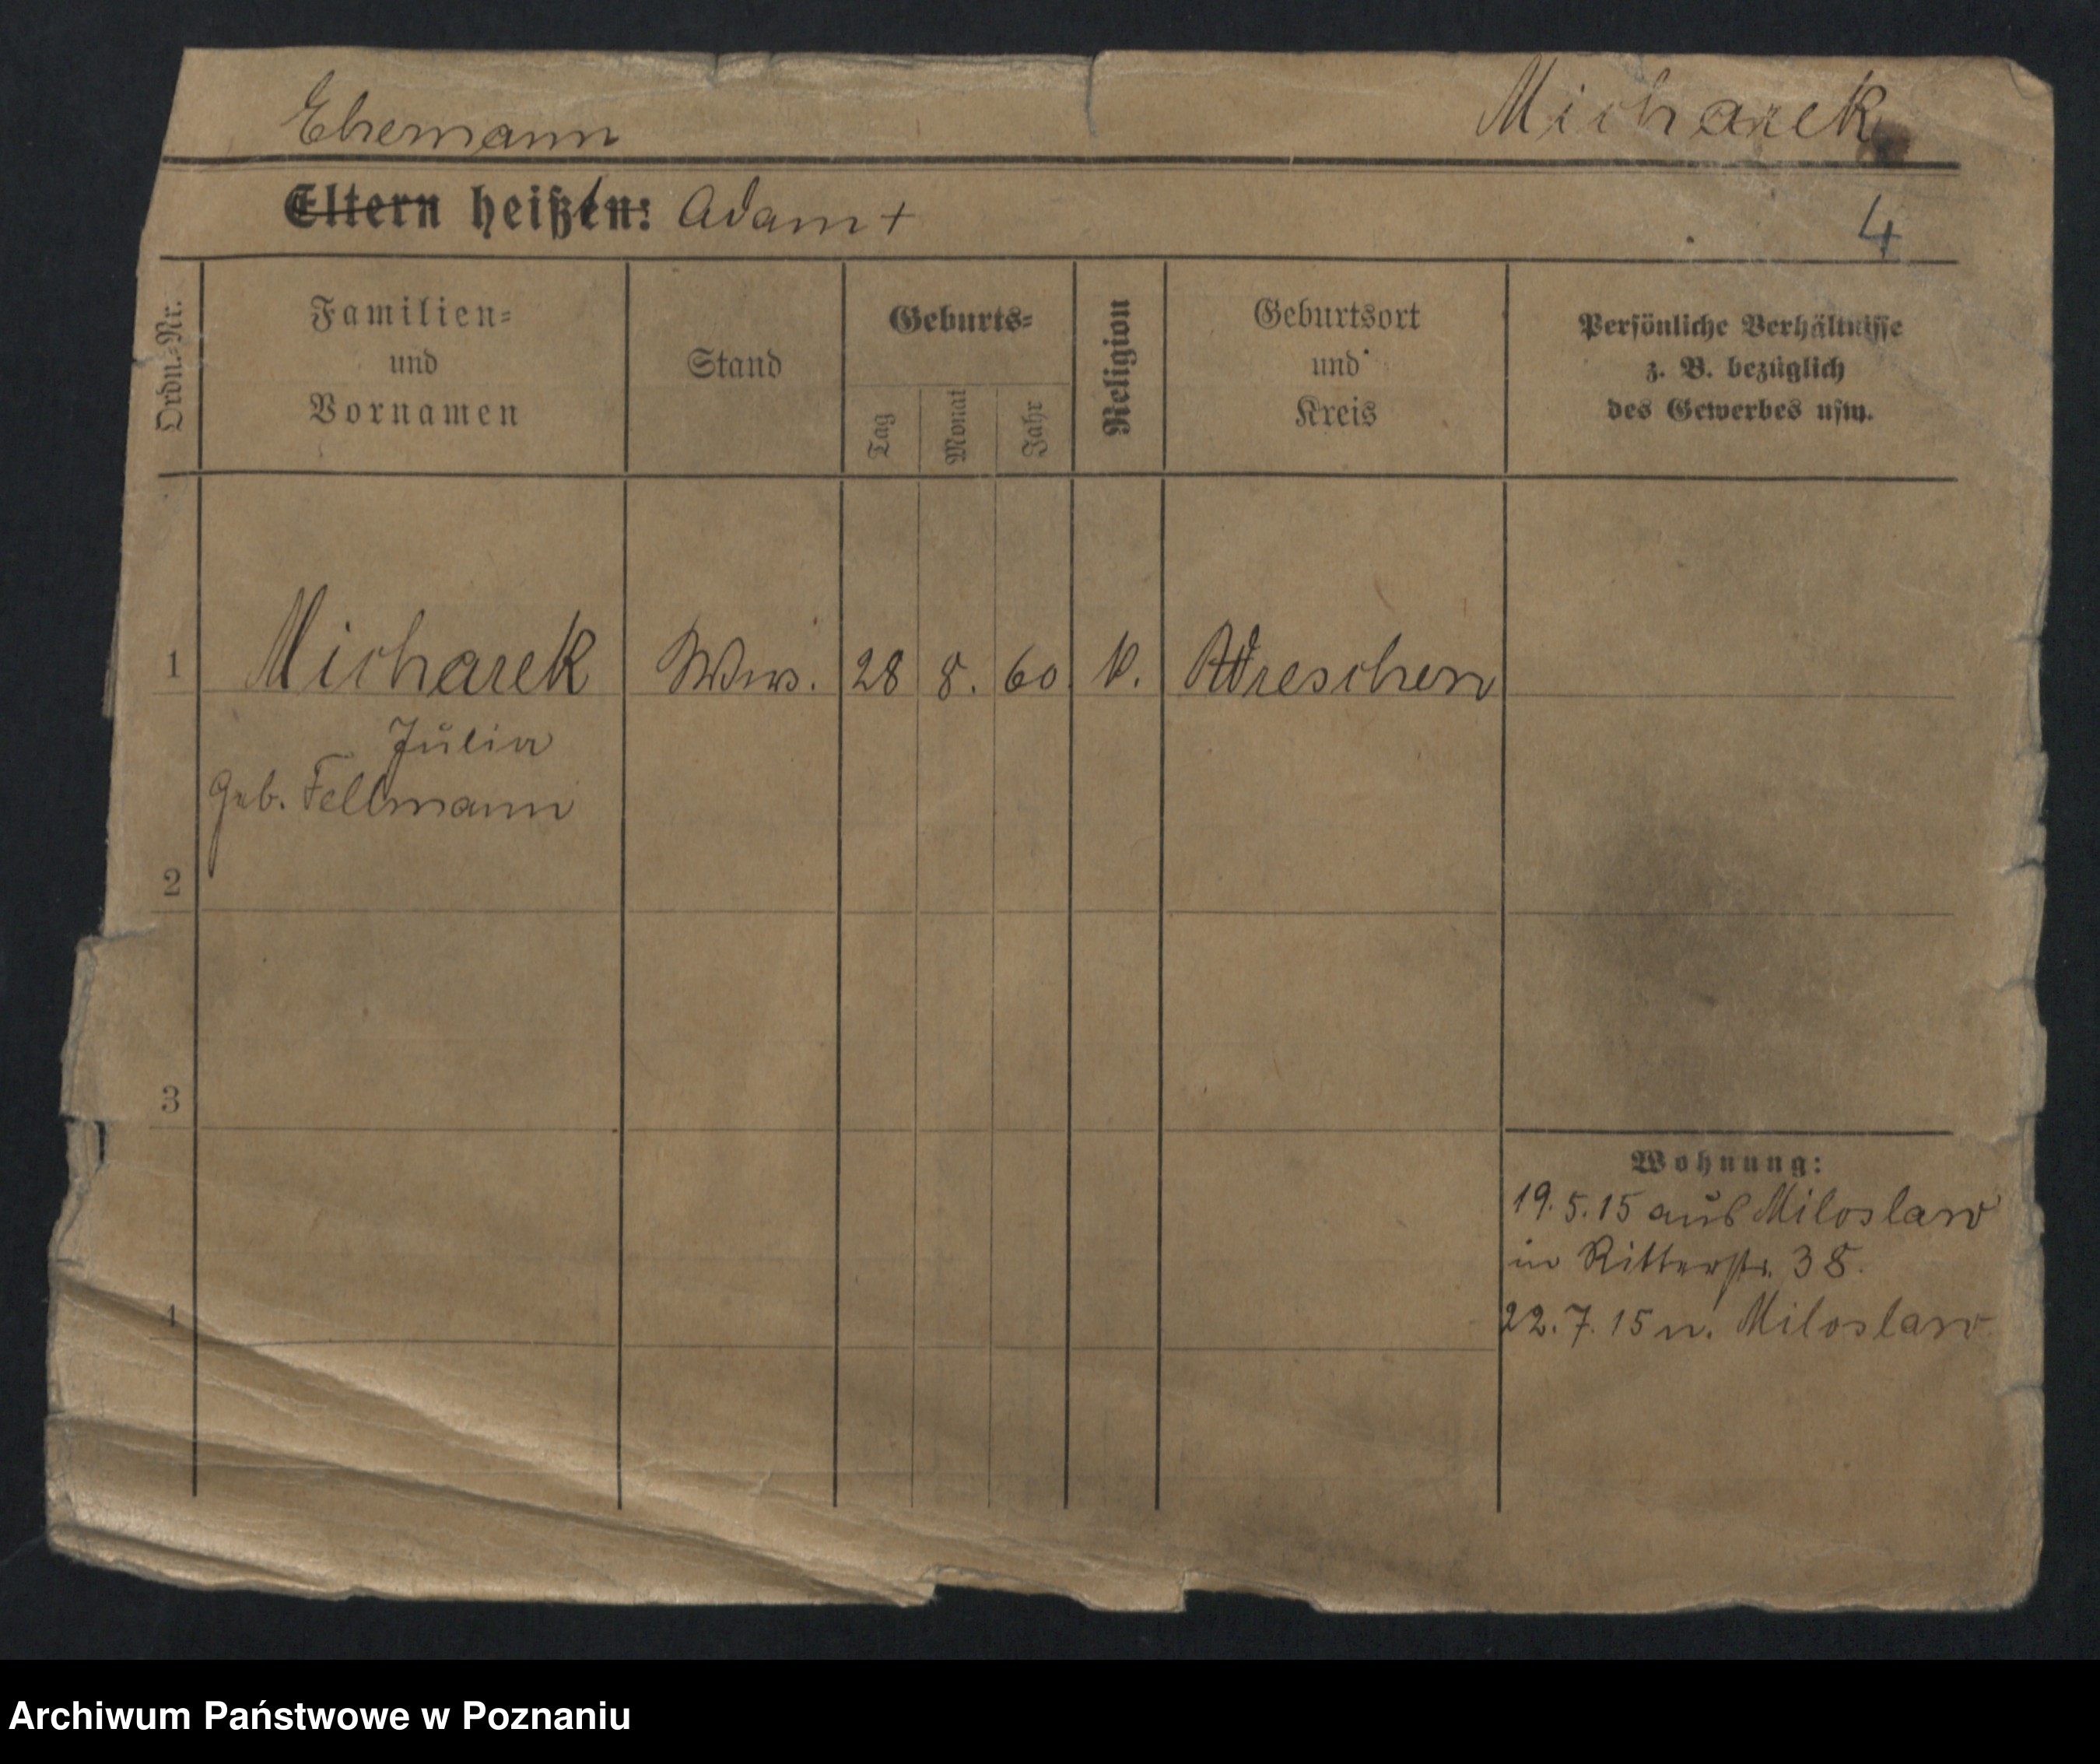 Ehemann Micharek
Eltern heißt: Adam +
4
Ordn.-Nr.
Familien-
und
Vornamen
Stand
Geburts-
Tag
Monat
Jahr
Religion
Geburtsort
und
Kreis
Persönliche Verhältnisse
z. B. bezüglich
des Gewerbes usw.
1 Micharek Wwe. 28 8. 60 k. Wreschen
Julia
geb. Fellmann
2
3
4
Wohnung:
19.5.15 aus Miloslaw
in Ritterstr. 38.
22.7.15 n. Miloslaw
Archiwum Państwowe w Poznaniu